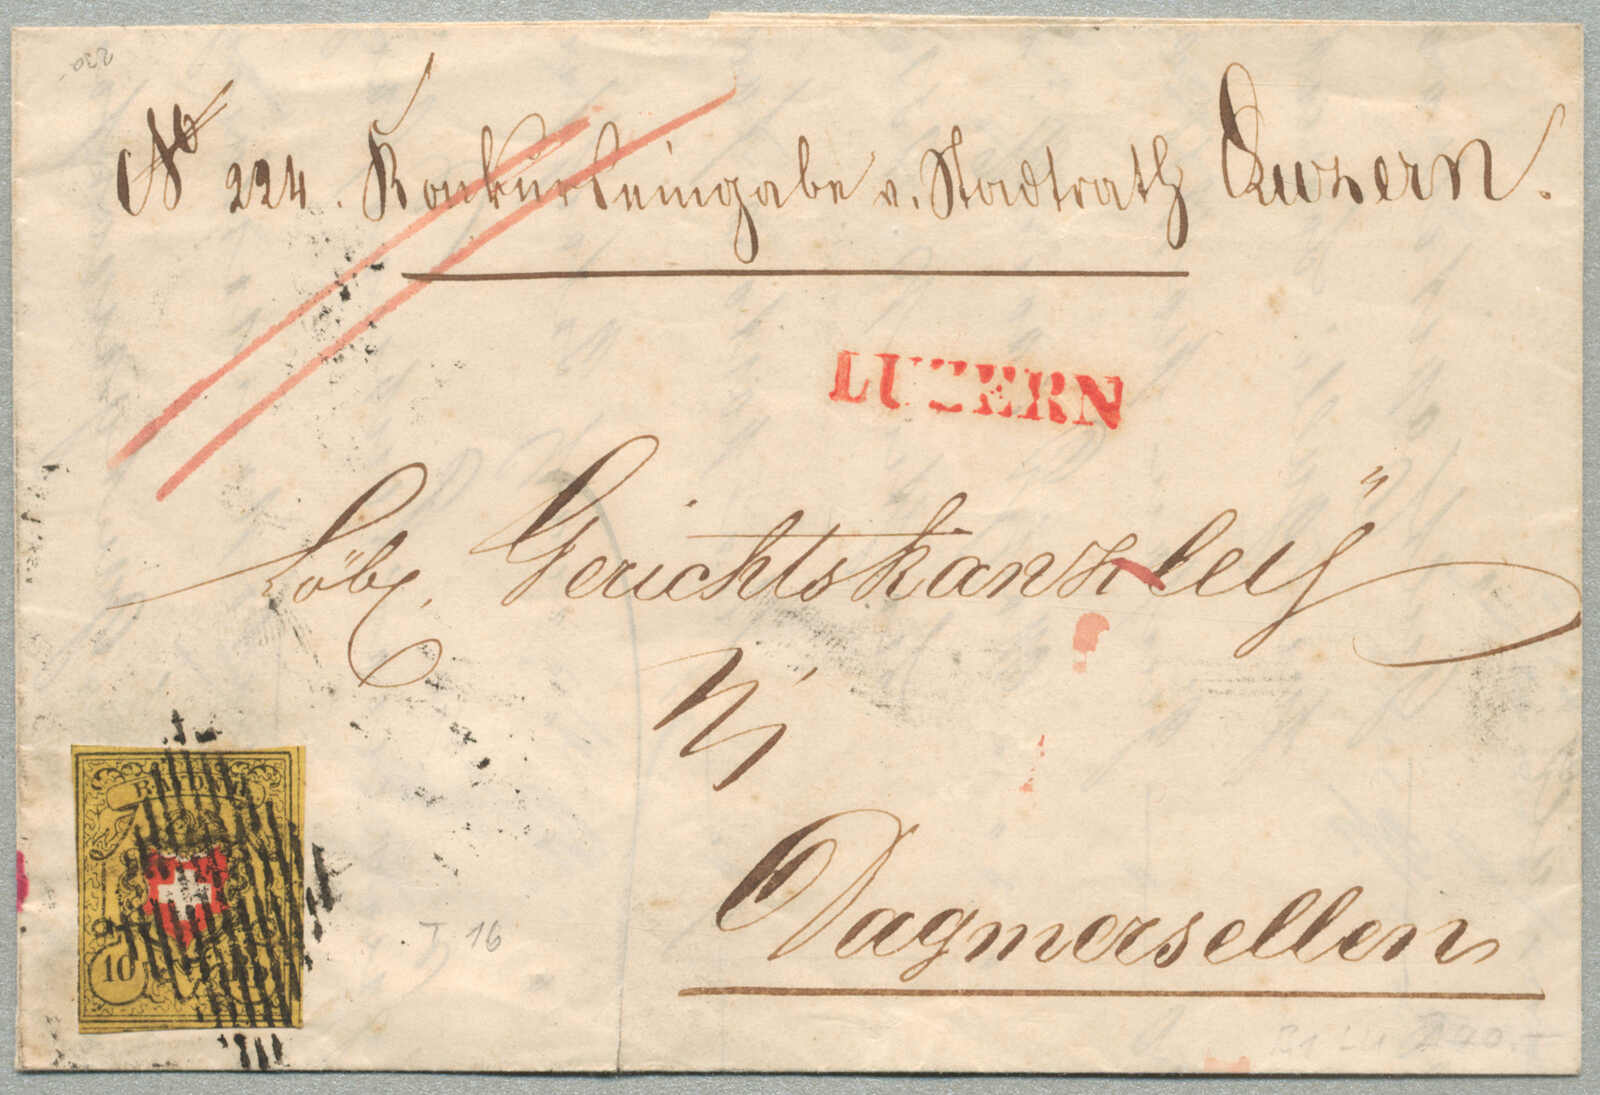 No 224. Konkurseingabe v. Stadtrath Luzern.
LUZERN
Löbl. Gerichtskanzley
in
Dagmersellen
RAYON II
10
T 16